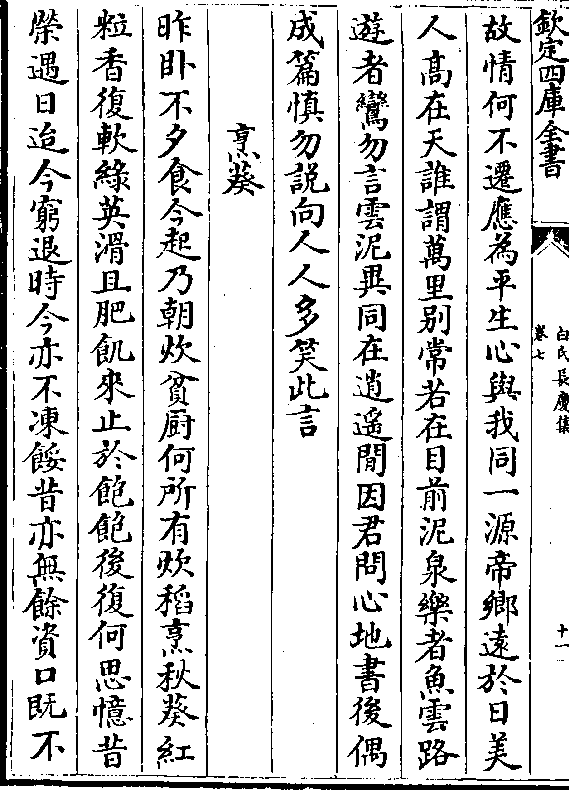 欽定四庫全書
白氏長慶集
卷七
十一
故情何不遷應為平生心與我同一源帝鄉遠於日美
人髙在天誰謂萬里别常若在目前泥泉樂者魚雲路
遊者鸞勿言雲泥異同在逍遙間因君問心地書後偶
成篇慎勿説向人人多笑此言
烹葵
昨卧不夕食今起乃朝炊貧厨何所有炊稻烹秋葵紅
粒香復軟綠英滑且肥飢來止於飽飽後復何思憶昔
榮遇日迨今窮退時今亦不凍餒昔亦無餘資口既不